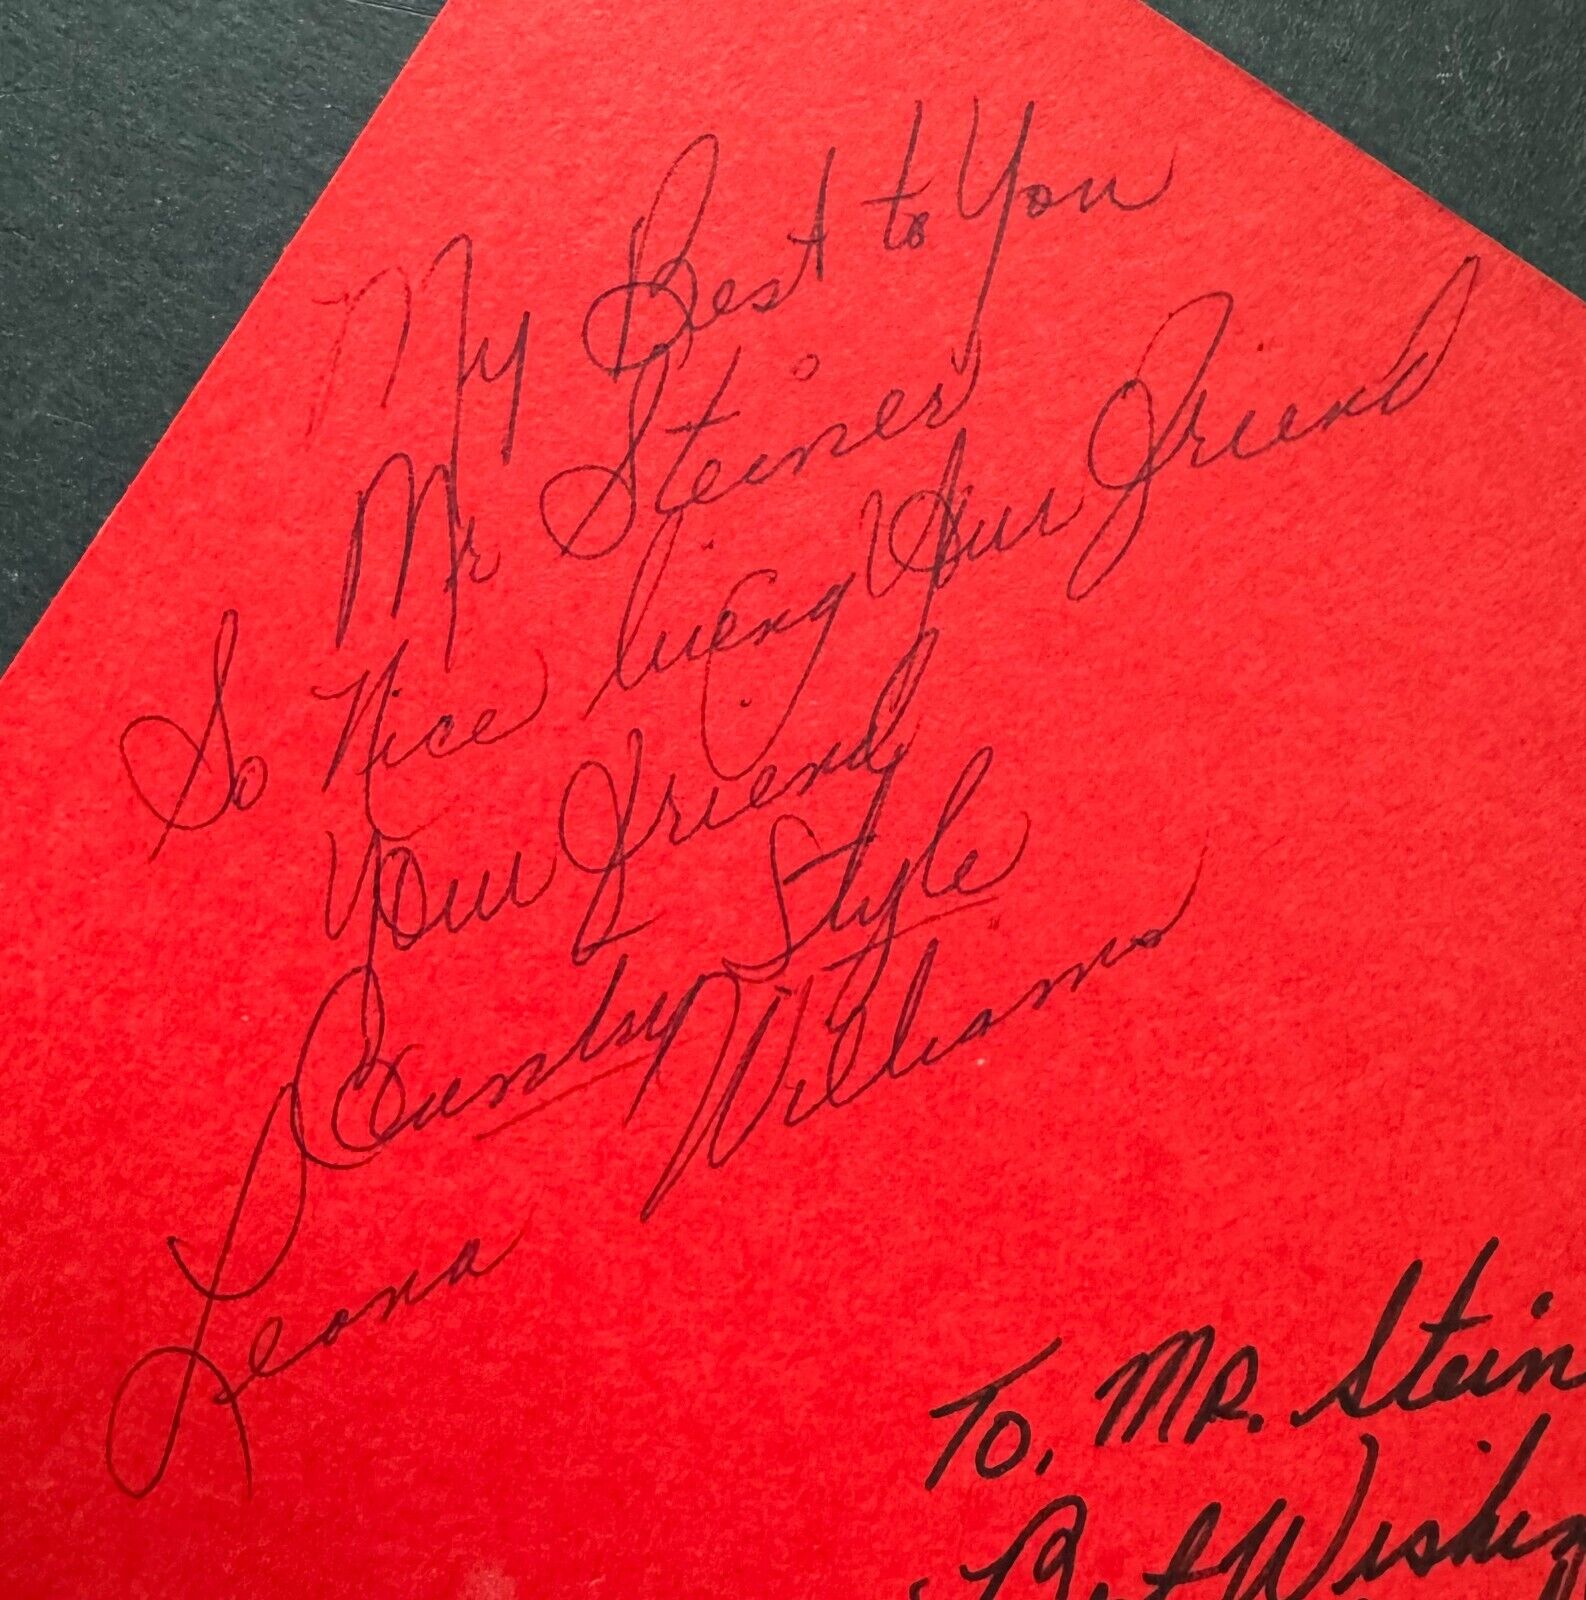 My Best to You
Mr Steiner
So Nice being Your Friend
Your Friend
Country Style
Leona Williams
To, MR. Stein
Best Wishes